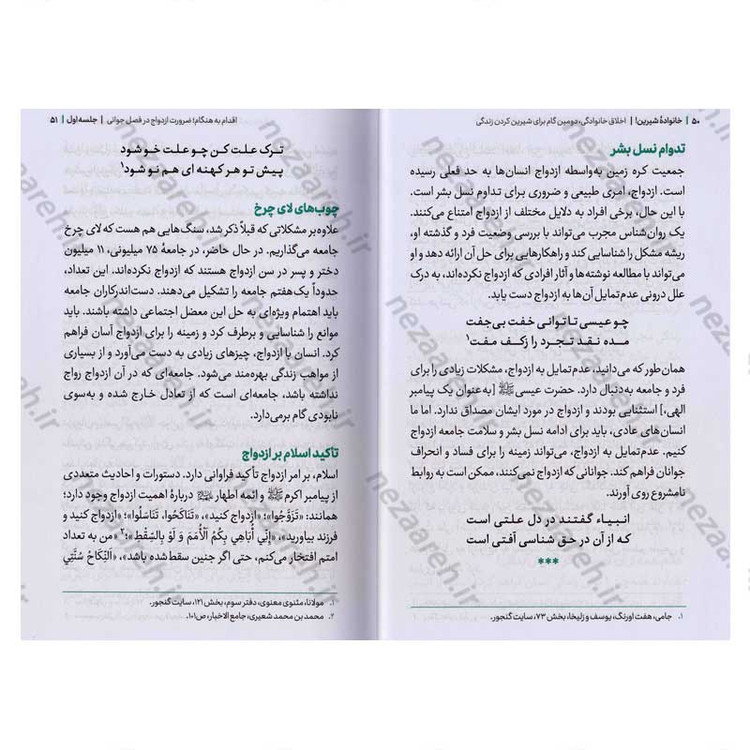 ۵۰ | خانوادهٔ شیرین! | اخلاق خانوادگی، دومین گام برای شیرین کردن زندگی
تدوام نسل بشر
جمعیت کره زمین به‌واسطه ازدواج انسان‌ها به حد فعلی رسیده
است. ازدواج، امری طبیعی و ضروری برای تداوم نسل بشر است.
با این حال، برخی افراد به دلایل مختلف از ازدواج امتناع می‌کنند.
یک روان‌شناس مجرب می‌تواند با بررسی وضعیت فرد و گذشته او،
ریشه مشکل را شناسایی کند و راهکارهایی برای حل آن ارائه دهد و او
می‌تواند با مطالعه نوشته‌ها و آثار افرادی که ازدواج نکرده‌اند، به درک
علل درونی عدم‌تمایل آن‌ها به ازدواج دست یابد.
چو عیسی تا توانی خفت بی‌جفت
مده نقد تجرد را زکف مفت۱
همان‌طور که می‌دانید، عدم‌تمایل به ازدواج، مشکلات زیادی را برای
فرد و جامعه به‌دنبال دارد. حضرت عیسی ﷺ [به‌عنوان یک پیامبر
الهی،] استثنایی بودند و ازدواج در مورد ایشان مصداق ندارد. اما ما
انسان‌های عادی، باید برای ادامه نسل بشر و سلامت جامعه ازدواج
کنیم. عدم‌تمایل به ازدواج، می‌تواند زمینه را برای فساد و انحراف
جوانان فراهم کند. جوانانی که ازدواج نمی‌کنند، ممکن است به روابط
نامشروع روی آورند.
انبیاء گفتند در دل علتی است
که از آن در حق شناسی آفتی است
***
۱. جامی، هفت اورنگ، یوسف و زلیخا، بخش ۷۳، سایت گنجور.
اقدام به هنگام؛ ضرورت ازدواج در فصل جوانی | جلسه اول | ۵۱
ترک علت کن چو علت خو شود
پیش تو هر کهنه ای هم نو شود۱
چوب‌های لای چرخ
علاوه‌بر مشکلاتی که قبلاً ذکر شد، سنگ‌هایی هم هست که لای چرخ
جامعه می‌گذاریم. در حال حاضر، در جامعهٔ ۷۵ میلیونی، ۱۱ میلیون
دختر و پسر در سن ازدواج هستند که ازدواج نکرده‌اند. این تعداد،
حدوداً یک‌هفتم جامعه را تشکیل می‌دهند. دست‌اندرکاران جامعه
باید اهتمام ویژه‌ای به حل این معضل اجتماعی داشته باشند. باید
موانع را شناسایی و برطرف کرد و زمینه را برای ازدواج آسان فراهم
کرد. انسان با ازدواج، چیزهای زیادی به دست می‌آورد و از بسیاری
از مواهب زندگی بهره‌مند می‌شود. جامعه‌ای که در آن ازدواج رواج
نداشته باشد، جامعه‌ای است که از تعادل خارج شده و به‌سوی
نابودی گام برمی‌دارد.
تأکید اسلام بر ازدواج
اسلام، بر امر ازدواج تأکید فراوانی دارد. دستورات و احادیث متعددی
از پیامبر اکرم ﷺ و ائمه اطهار دربارهٔ اهمیت ازدواج وجود دارد؛
همانند: «تَزَوَّجُوا»؛ «ازدواج کنید»، «تَناکَحُوا، تَنَاسَلُوا»؛ «ازدواج کنید و
فرزند بیاورید»، «إنّي أُباهِي بِكُمُ الْأُمَمَ وَ لَوْ بِالسِّقْطِ»؛۲ «من به تعداد
امتم افتخار می‌کنم، حتی اگر جنین سقط‌شده باشد»، «اَلنِّكَاحُ سُنَّتِي
۱. مولانا، مثنوی معنوی، دفتر سوم، بخش ۱۲۱، سایت گنجور.
۲. محمد بن محمد شعیری، جامع الاخبار، ص۱۰۱.
nezaareh.ir